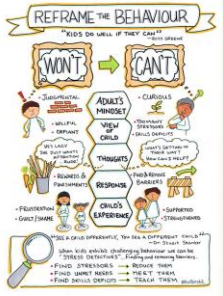 REFRAME THE BEHAVIOUR
"KIDS DO WELL IF THEY CAN"
- ROSS GREENE
WON'T
CAN'T
- JUDGMENTAL
ADULT'S
MINDSET
- CURIOUS
- WILLFUL
- DEFIANT
VIEW
OF
CHILD
- TOO MANY
STRESSORS
- SKILLS DEFICITS
THOUGHTS
WHAT'S GETTING IN
THEIR WAY?
HOW CAN I HELP?
- REWARDS &
PUNISHMENTS
RESPONSE
- FIND & REMOVE
BARRIERS
- FRUSTRATION
- GUILT/SHAME
CHILD'S
EXPERIENCE
- SUPPORTED
- STRENGTHENED
"SEE A CHILD DIFFERENTLY, YOU SEE A DIFFERENT CHILD."
- Dr. Stuart Shanker
When kids exhibit challenging behaviour we can be
"STRESS DETECTIVES". Finding and removing barriers.
- FIND STRESSORS → REDUCE THEM
- FIND UNMET NEEDS → MEET THEM
- FIND SKILLS DEFICITS → TEACH THEM